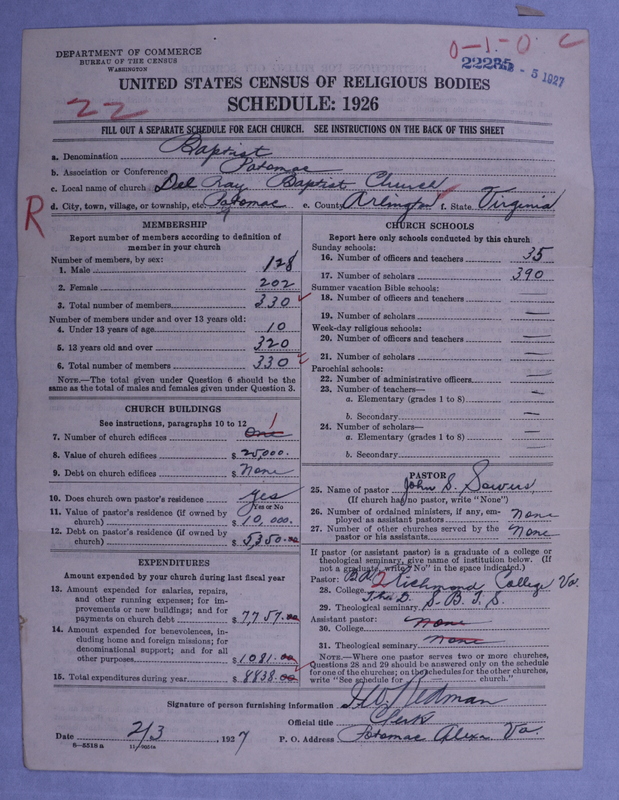 DEPARTMENT OF COMMERCE
BUREAU OF THE CENSUS
WASHINGTON
0-1-0 C
22235
- 5 1927
22
UNITED STATES CENSUS OF RELIGIOUS BODIES
SCHEDULE: 1926
FILL OUT A SEPARATE SCHEDULE FOR EACH CHURCH. SEE INSTRUCTIONS ON THE BACK OF THIS SHEET
a. Denomination Baptist
b. Association or Conference Potomac
c. Local name of church Del Ray Baptist Church
R
d. City, town, village, or township, etc. Potomac e. County Arlington f. State Virginia
MEMBERSHIP
Report number of members according to definition of member in your church
Number of members, by sex:
1. Male 128
2. Female 202
3. Total number of members 330
Number of members under and over 13 years old:
4. Under 13 years of age 10
5. 13 years old and over 320
6. Total number of members 330
NOTE.—The total given under Question 6 should be the same as the total of males and females given under Question 3.
CHURCH BUILDINGS
See instructions, paragraphs 10 to 12
7. Number of church edifices One 1
8. Value of church edifices $ 25,000.
9. Debt on church edifices $ None
10. Does church own pastor's residence yes
Yes or No
11. Value of pastor's residence (if owned by church) $ 10,000.
12. Debt on pastor's residence (if owned by church) $ 5,350.00
EXPENDITURES
Amount expended by your church during last fiscal year
13. Amount expended for salaries, repairs, and other running expenses; for improvements or new buildings; and for payments on church debt $ 7,757.00
14. Amount expended for benevolences, including home and foreign missions; for denominational support; and for all other purposes $ 1081.00
15. Total expenditures during year $ 8838.00
CHURCH SCHOOLS
Report here only schools conducted by this church
Sunday schools:
16. Number of officers and teachers 35
17. Number of scholars 390
Summer vacation Bible schools:
18. Number of officers and teachers —
19. Number of scholars —
Week-day religious schools:
20. Number of officers and teachers —
21. Number of scholars —
Parochial schools:
22. Number of administrative officers —
23. Number of teachers—
a. Elementary (grades 1 to 8) —
b. Secondary —
24. Number of scholars—
a. Elementary (grades 1 to 8) —
b. Secondary —
PASTOR
25. Name of pastor John S. Sowers
(If church has no pastor, write "None")
26. Number of ordained ministers, if any, employed as assistant pastors none
27. Number of other churches served by the pastor or his assistants none
If pastor (or assistant pastor) is a graduate of a college or theological seminary, give name of institution below. (If not a graduate, write "No" in the space indicated.)
Pastor: B.A. 2
28. College Richmond College Va.
Th. D.
29. Theological seminary S. B. T. S.
Assistant pastor:
30. College none
31. Theological seminary none
NOTE.—Where one pastor serves two or more churches, Questions 28 and 29 should be answered only on the schedule for one of the churches; on the schedules for the other churches, write "See schedule for church."
Signature of person furnishing information
Official title Clerk
Date 2/3, 1927 P. O. Address Potomac Alexa Va.
8—5516 a